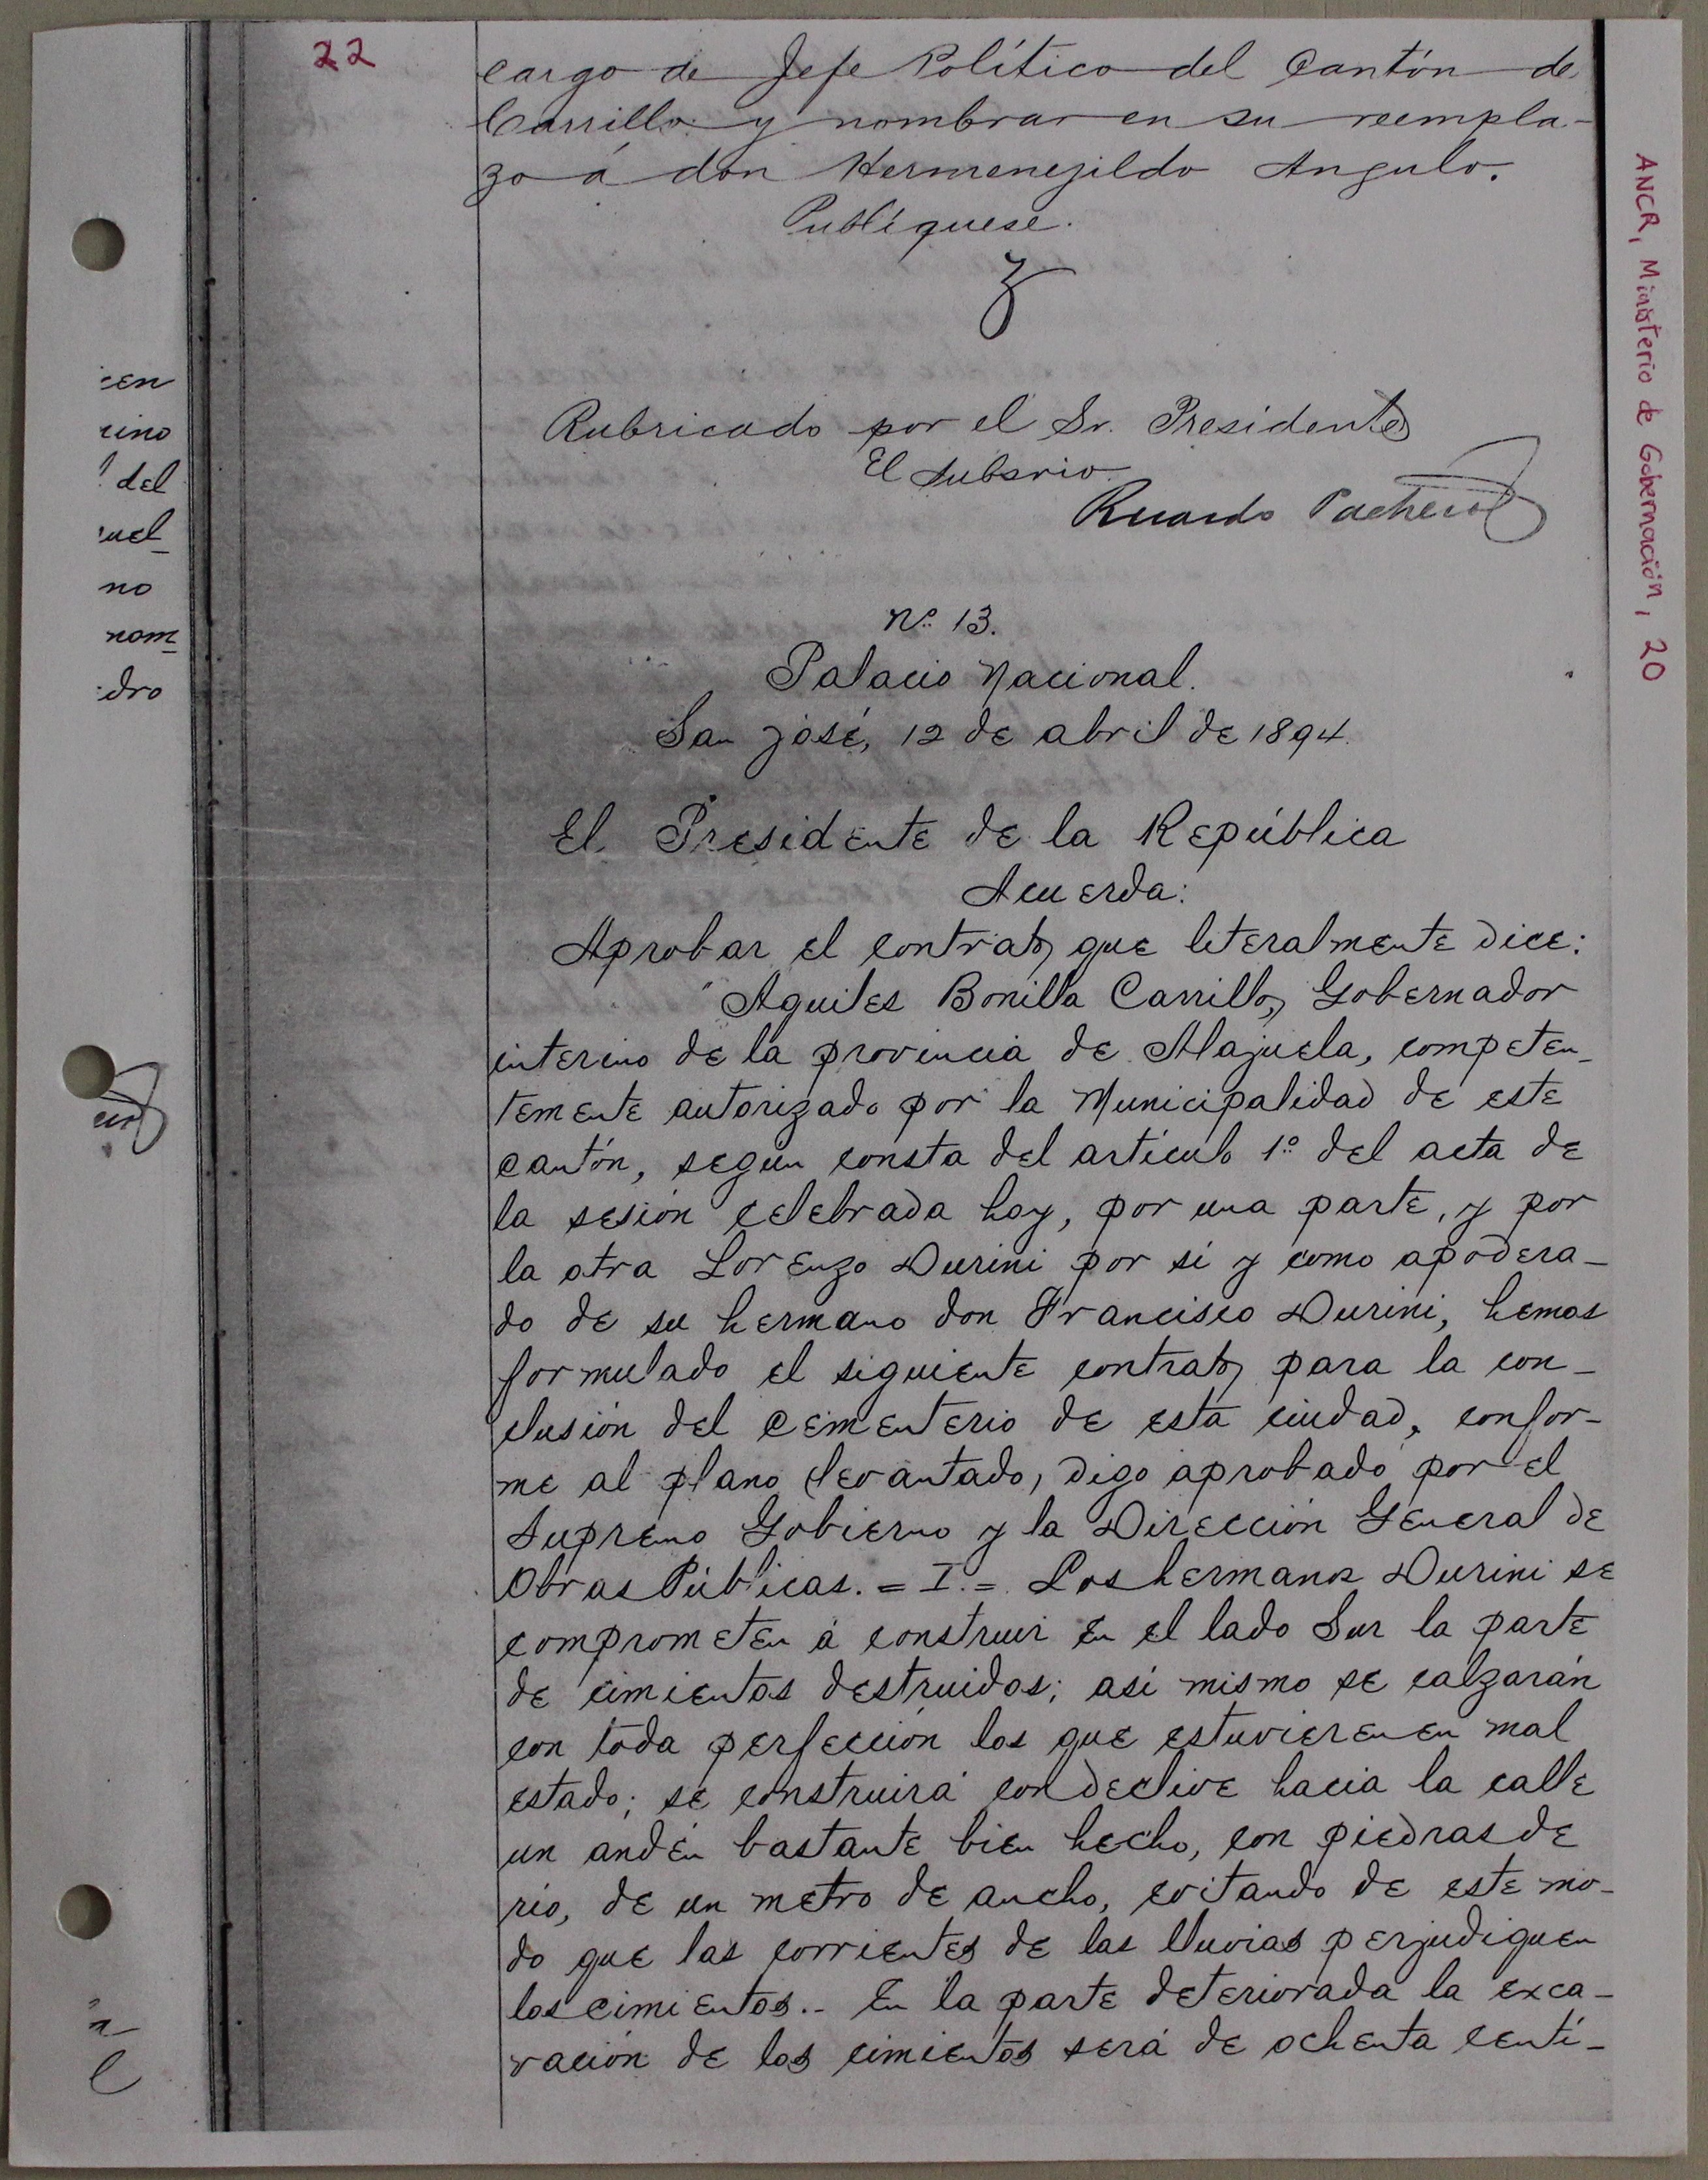 22
cargo de Jefe Político del Cantón de
Carrillo y nombrar en su reempla-
zo á don Hermenejildo Angulo.
Publíquese.
Rubricado por el Sr. Presidente
El Subsrio.
Ricardo Pacheco
Nº 13.
Palacio Nacional.
San José, 12 de abril de 1894.
El Presidente de la República
Acuerda:
Aprobar el contrato que literalmente dice:
"Aquiles Bonilla Carrillo, Gobernador
interino de la provincia de Alajuela, competen-
temente autorizado por la Municipalidad de este
cantón, segun consta del artículo 1º del acta de
la sesión celebrada hoy, por una parte, y por
la otra Lorenzo Durini por si y como apodera-
do de su hermano don Francisco Durini, hemos
formulado el siguiente contrato para la con-
clusión del cementerio de esta ciudad, confor-
me al plano levantado, digo aprobado por el
Supremo Gobierno y la Dirección General de
Obras Públicas. = I. = Los hermanos Durini se
comprometen á construir en el lado Sur la parte
de cimientos destruidos; asi mismo se calzarán
con toda perfección los que estuvieren en mal
estado; se construirá con declive hacia la calle
un andén bastante bien hecho, con piedras de
río, de un metro de ancho, evitando de este mo-
do que las corrientes de las lluvias perjudiquen
los cimientos. - En la parte deteriorada la exca-
vación de los cimientos será de ochenta centí-
ANCR, Ministerio de Gobernación, 20
cen
rino
del
uel
no
nom
dro